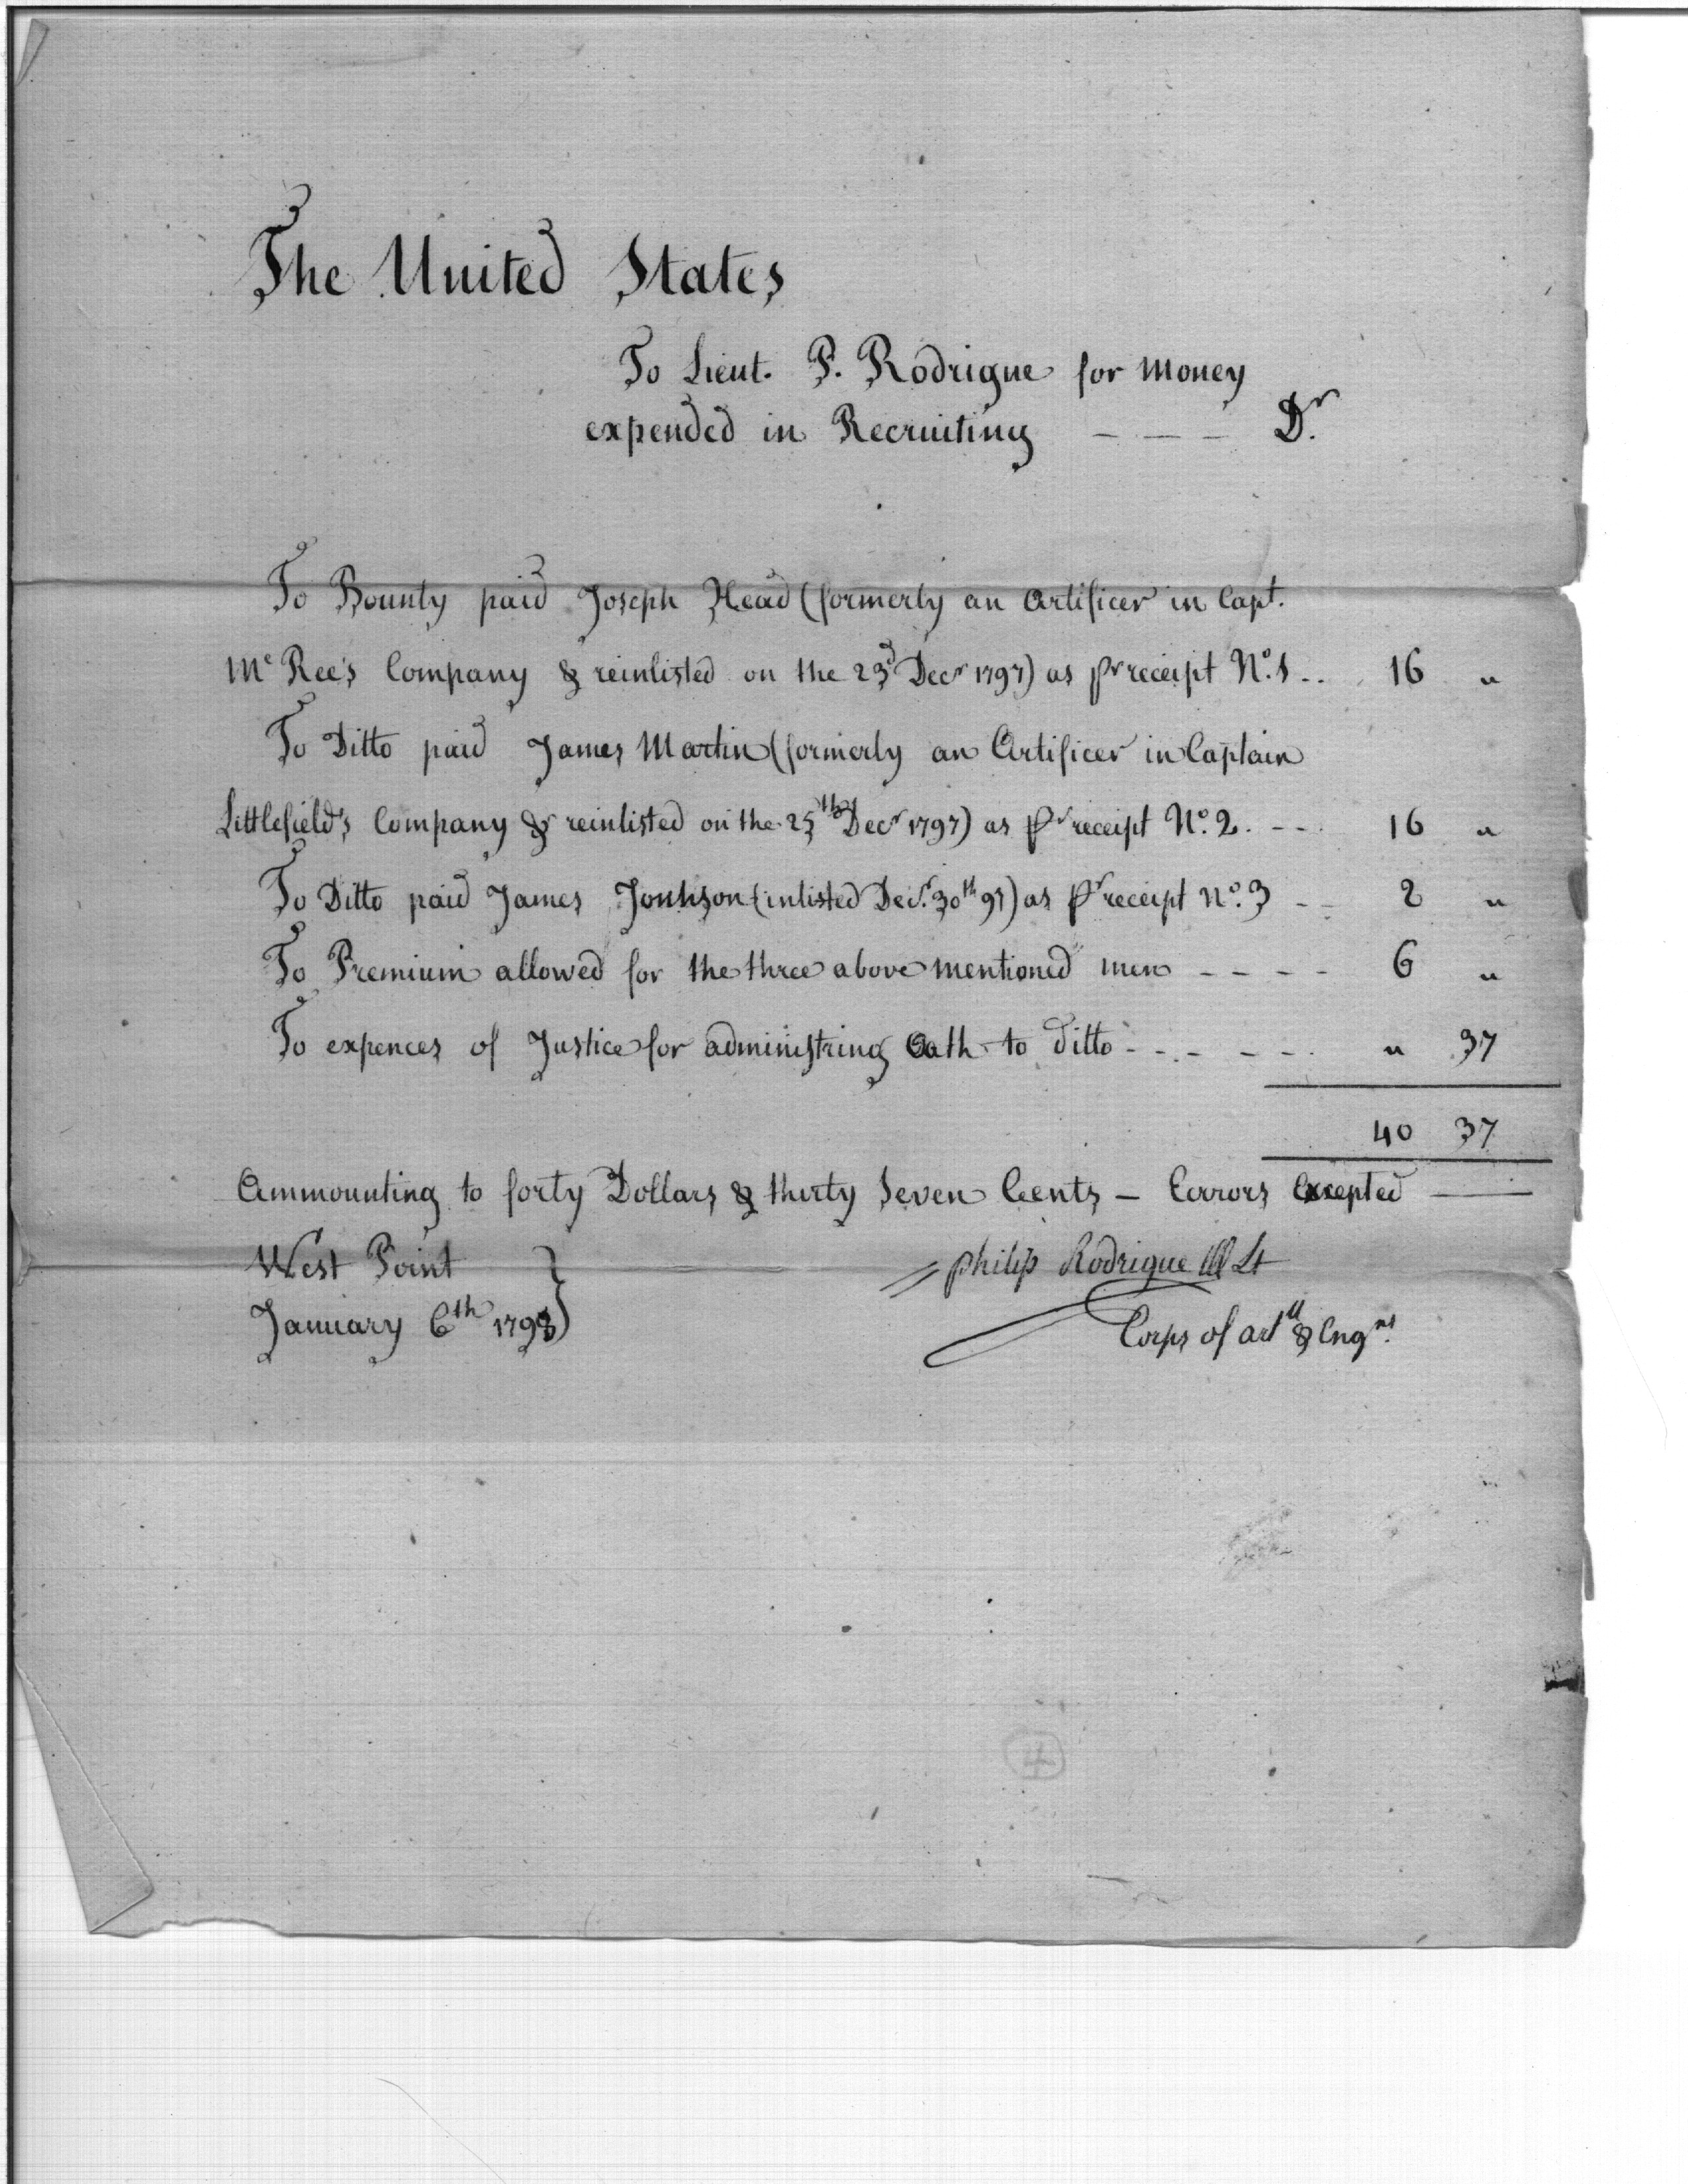 The United States
To Lieut. P. Rodrigue for Money
expended in Recruiting — — — Dr.
To Bounty paid Joseph Head (formerly an Artificer in Capt.
Mc Ree's Company & reinlisted on the 23d Decr 1797) as pr receipt No. 1 .. 16 "
To Ditto paid James Martin (formerly an Artificer in Captain
Littlefield's Company & reinlisted on the 25th Decr 1797) as pr receipt No. 2. - - - 16 "
To Ditto paid James Jonhson (inlisted Decr. 30th 97) as pr receipt No. 3 - - 2 "
To Premium allowed for the three above mentioned men - - - - 6 "
To expences of Justice for administring Oath to Ditto - - - - - - " 37
40 37
Ammounting to forty Dollars & thirty Seven Cents — Errors Excepted —
West Point
January 6th 1798
Philip Rodrigue Lt
Corps of artll & Engrs.
4